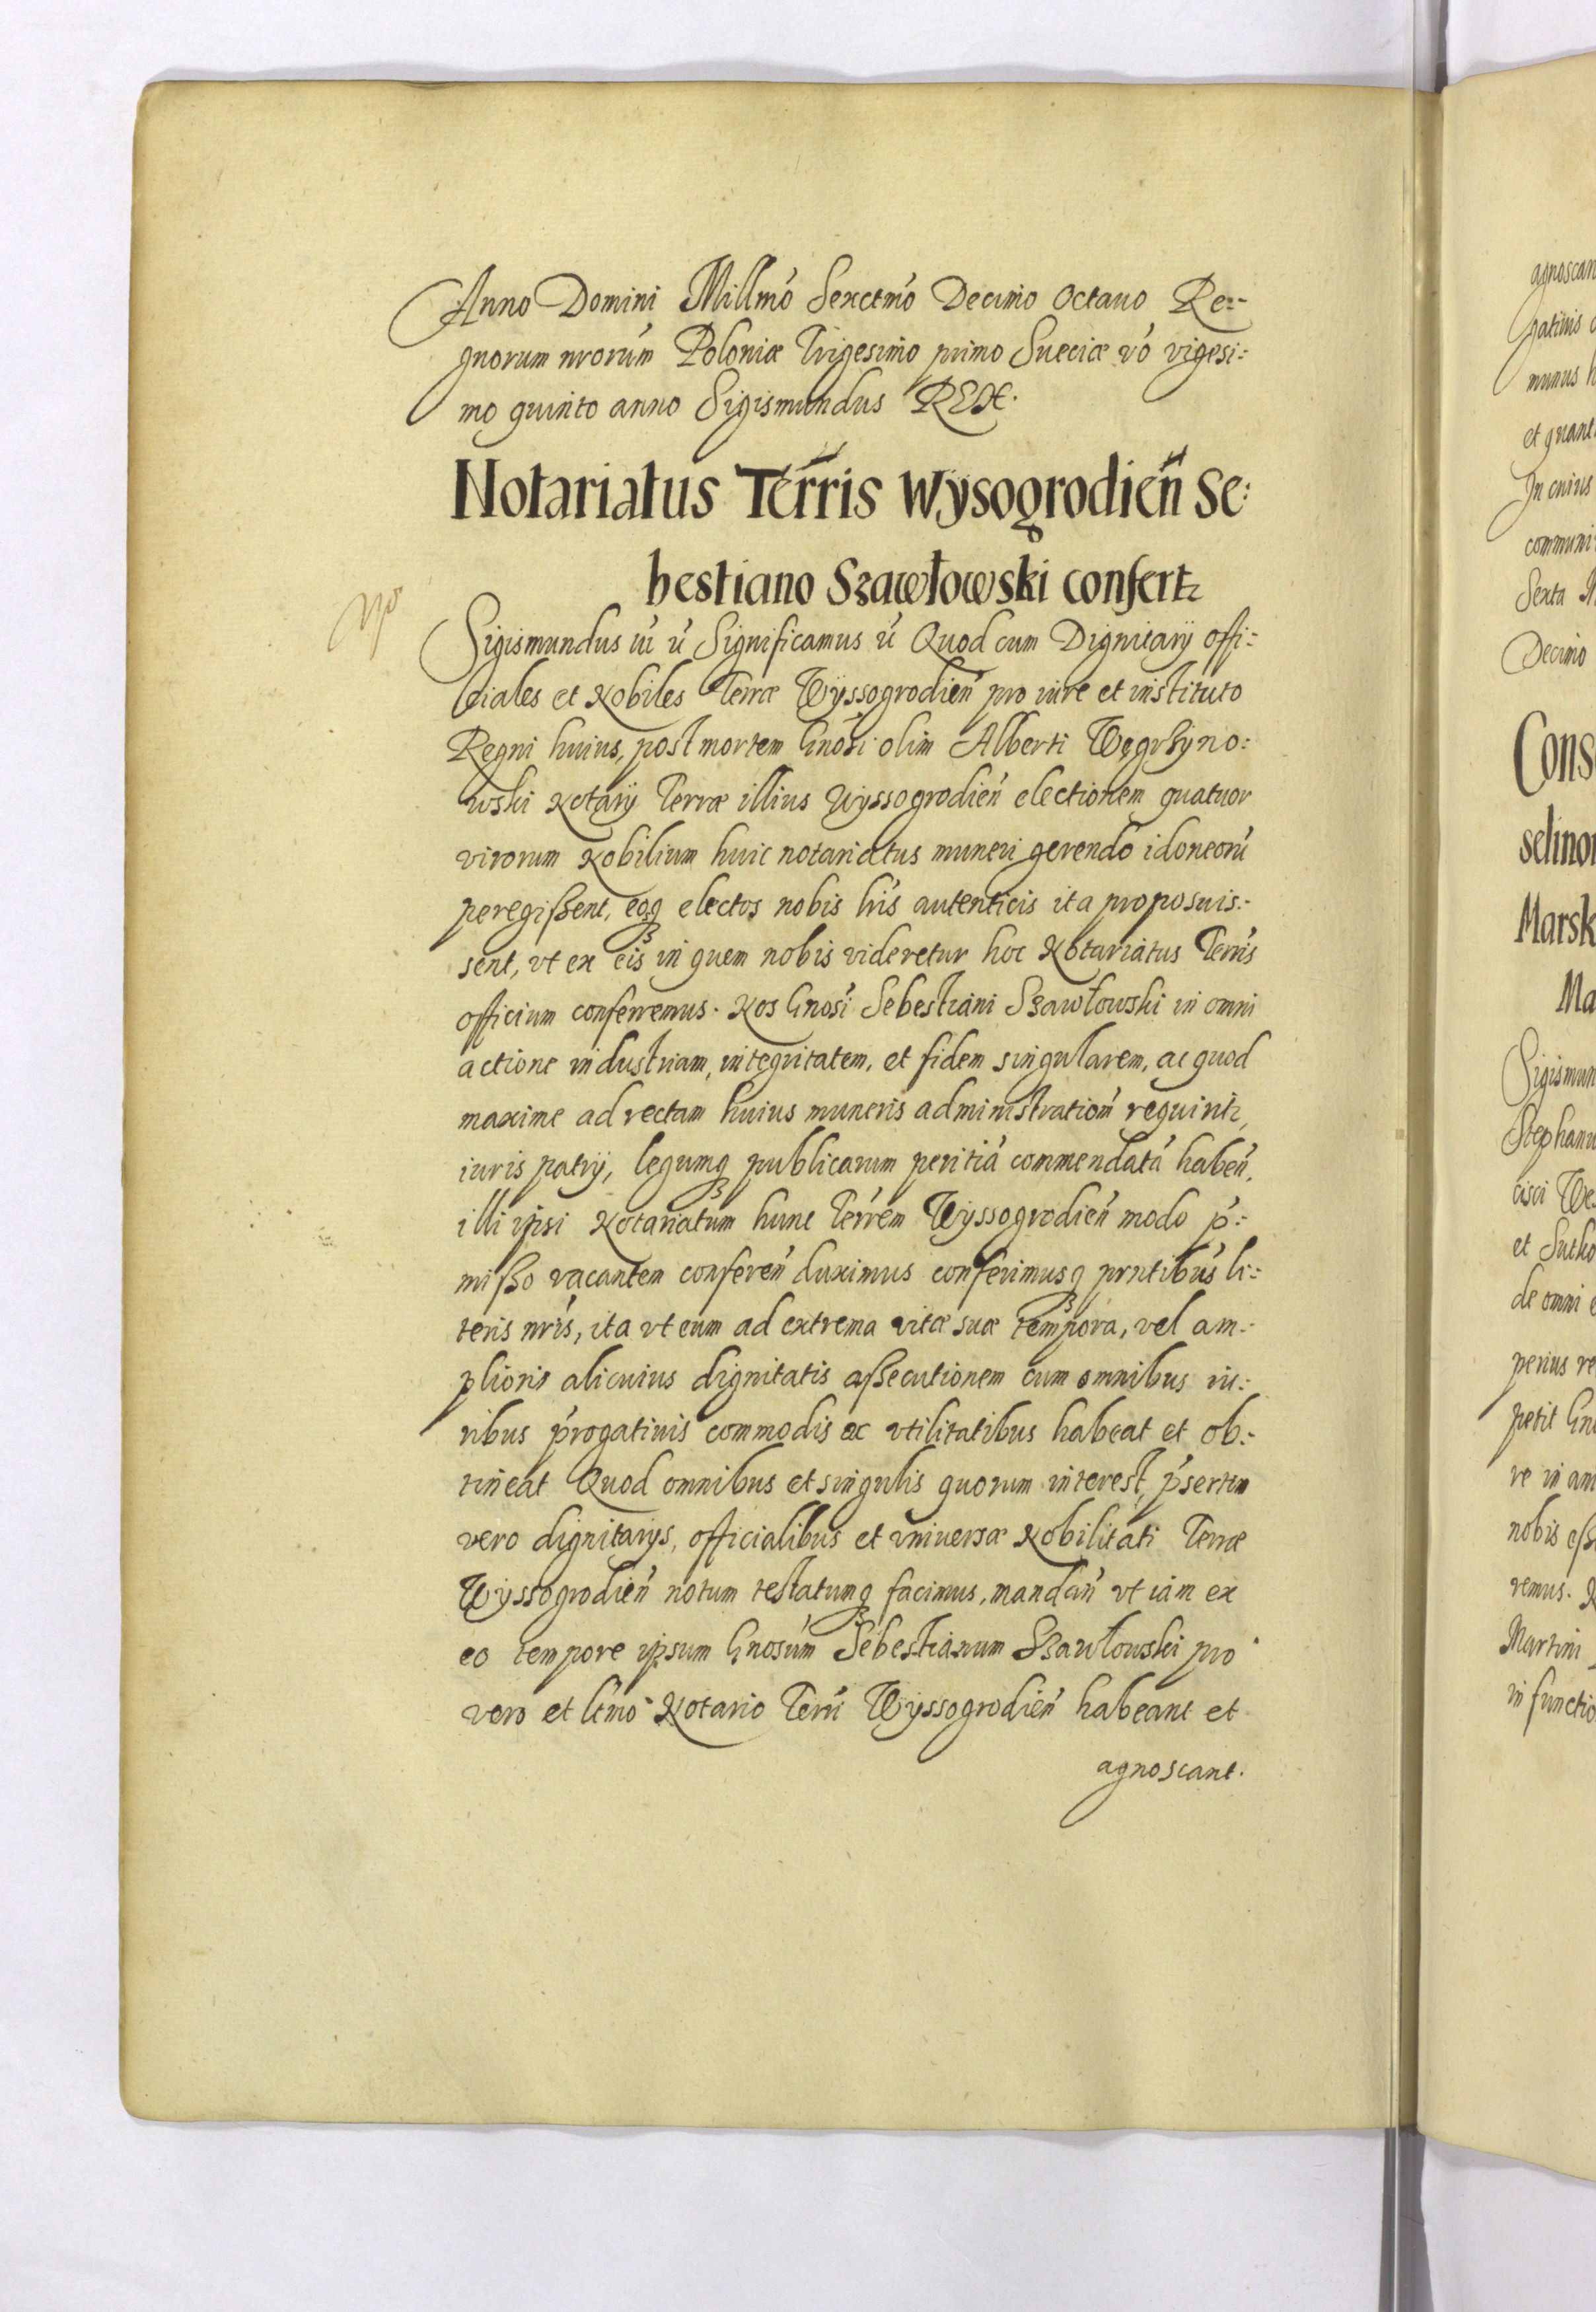 Anno Domini Millmo Sexctmo Decimo Octavo Re=
gnorum nrorum Poloniæ Trigesimo primo Sueciæ vo vigesi=
mo quinto anno Sigismundus REX.
Notariatus Terris Wysogrodien̄ Se:
bestiano Szawłowski confertz
Sigismundus iii ū Significamus ū Quod cum Dignitarij offi=
ciales et Nobiles Terræ Wyssogrodien̄ pro iure et instituto
Regni huius, post mortem Gnosi olim Alberti Węgrzyno=
wski Notarij Terræ illius Wyssogrodien̄ electionem quatuor
virorum Nobilium huic notariatus muneri gerendo idoneorū
peregißent, eosq3 electos nobis lris autenticis ita proposuis=
sent, vt ex eis in quem nobis videretur hoc Notariatus Terris
officium conferremus. Nos Gnosi Sebestiani Szawłowski in omni
actione industriam, integritatem, et fidem singularem, ac quod
maxime ad rectam huius muneris administrationē requiritz,
iuris patrij, legumq3 publicarum peritiā commendatā habēn,
illi ipsi Notariatum hunc Terrem Wyssogrodien̄ modo p=
mißo vacantem conferen̄ duximus conferimusq3 prntibus li=
teris nris, ita vt eum ad extrema vitæ suæ tempora, vel am=
plioris alicuius dignitatis aßecutionem cum omnibus iu=
ribus progatiuis commodis ac vtilitatibus habeat et ob=
tineat Quod omnibus et singulis quorum interest, psertim
vero dignitarijs, officialibus et vniuersæ Nobilitati Terræ
Wyssogrodien̄ notum testatumq3 facimus, mandan̄ vt iam ex
eo tempore ipsum Gnosum Sebestianum Szawłowski pro
vero et ltmo Notario Terri Wyssogrodien̄ habeant et
agnoscant.
agnoscan
gatiuis
munus h
et quant
In cuius
communi
Sexta
Decimo
Cons
selinor
Marsk
Ma
Sigismun
Stephanu
cisci We
et Sutko
de omni
perius re
petit Gn
re in am
nobis eß
remus.
Martini
in functio